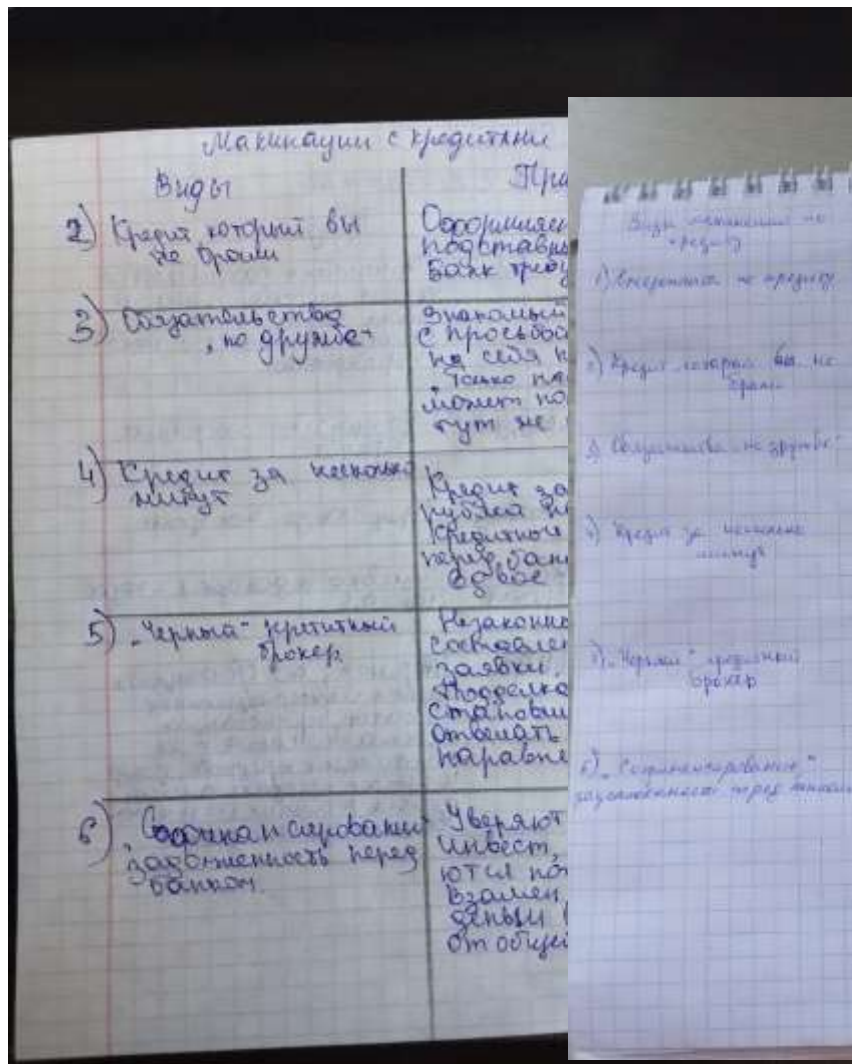 Махинации с кредитами
Виды
При
2) Кредит который вы
не брали
Оформляет
подставны
Банк требу
3) Обязательства
"по дружбе"
Знакомый
с просьбой
на себя к
только на
может по
тут же
4) Кредит за несколько
минут
Кредит за
рубежа
Кредитное
перед бан
вдвое
5) "Черный" кретитный
брокер
Незаконно
составлен
заявки.
Подделка
становит
отвечать
наравне
6) "Софинансирований
задолженность перед
банком.
Уверяют
инвест,
ются
взамен
деньги
от общей
Виды
кредиту
1) по кредиту
2) Кредит который вы не
брали
3) Обязательства по дружбе"
4) Кредит за несколько
минут
5) "Черный" кредитный
брокер
6) "Софинансирование"
задолженности перед банком